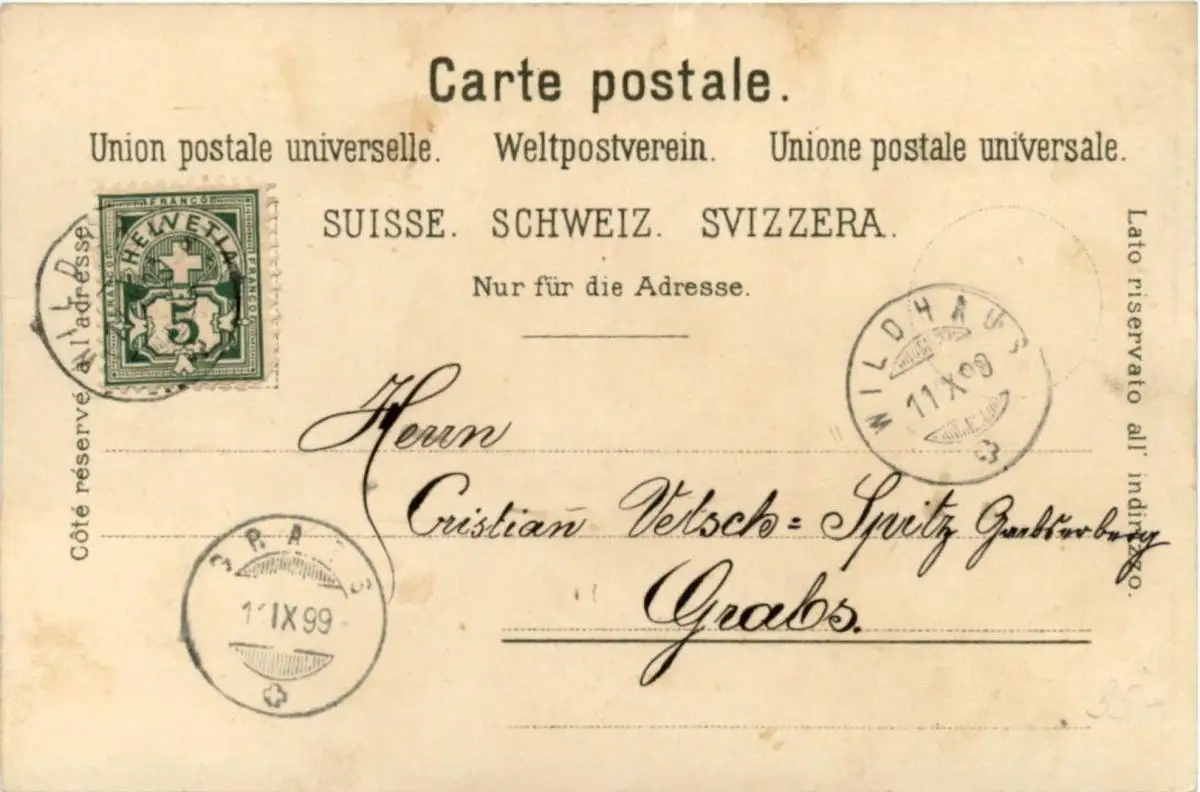 Carte postale.
Union postale universelle. Weltpostverein. Unione postale universale.
SUISSE. SCHWEIZ. SVIZZERA.
Nur für die Adresse.
Côté réservé à l'adresse
Lato riservato all' indirizzo.
FRANCO
FRANCO
FRANCO
HELVETIA
5
WILD
WILDHAUS
11 X 99
Herrn
Cristian̄ Vetsch = Spitz Grabserberg
Grabs.
GRABS
IX 99
35.-